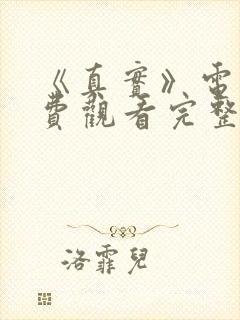 《真實》電
費觀看完整
洛霏兒